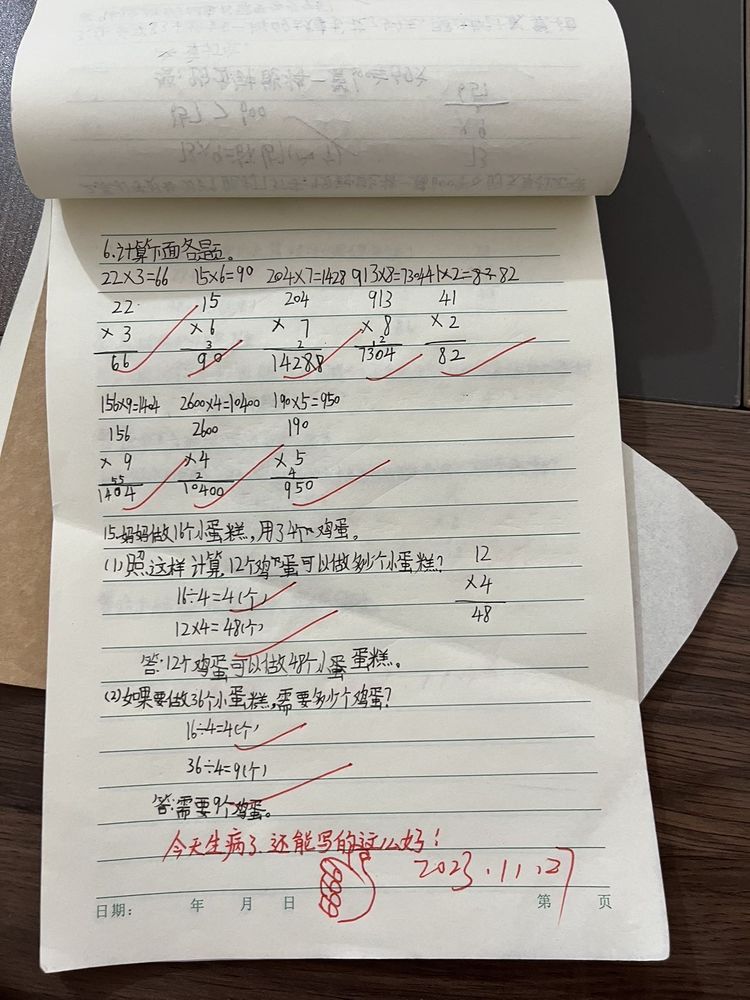 6.计算下面各题。
22×3=66 15×6=90 204×7=1428 913×8=7304 41×2=82
22 15 204 913 41
×3 ×6 ×7 ×8 ×2
3 2 12
66 90 14288 7304 82
156×9=1404 2600×4=10400 190×5=950
156 2600 190
×9 ×4 ×5
55 2 4
1404 10400 950
15.妈妈做16个小蛋糕,用了4个鸡蛋。
(1)照这样计算,12个鸡蛋可以做多少个小蛋糕?
12
×4
48
16÷4=4(个)
12×4=48(个)
答:12个鸡蛋可以做48个小蛋糕。
(2)如果要做36个小蛋糕,需要多少个鸡蛋?
16÷4=4(个)
36÷4=9(个)
答:需要9个鸡蛋。
今天生病了还能写的这么好!
2023.11.27
日期: 年 月 日 第 页